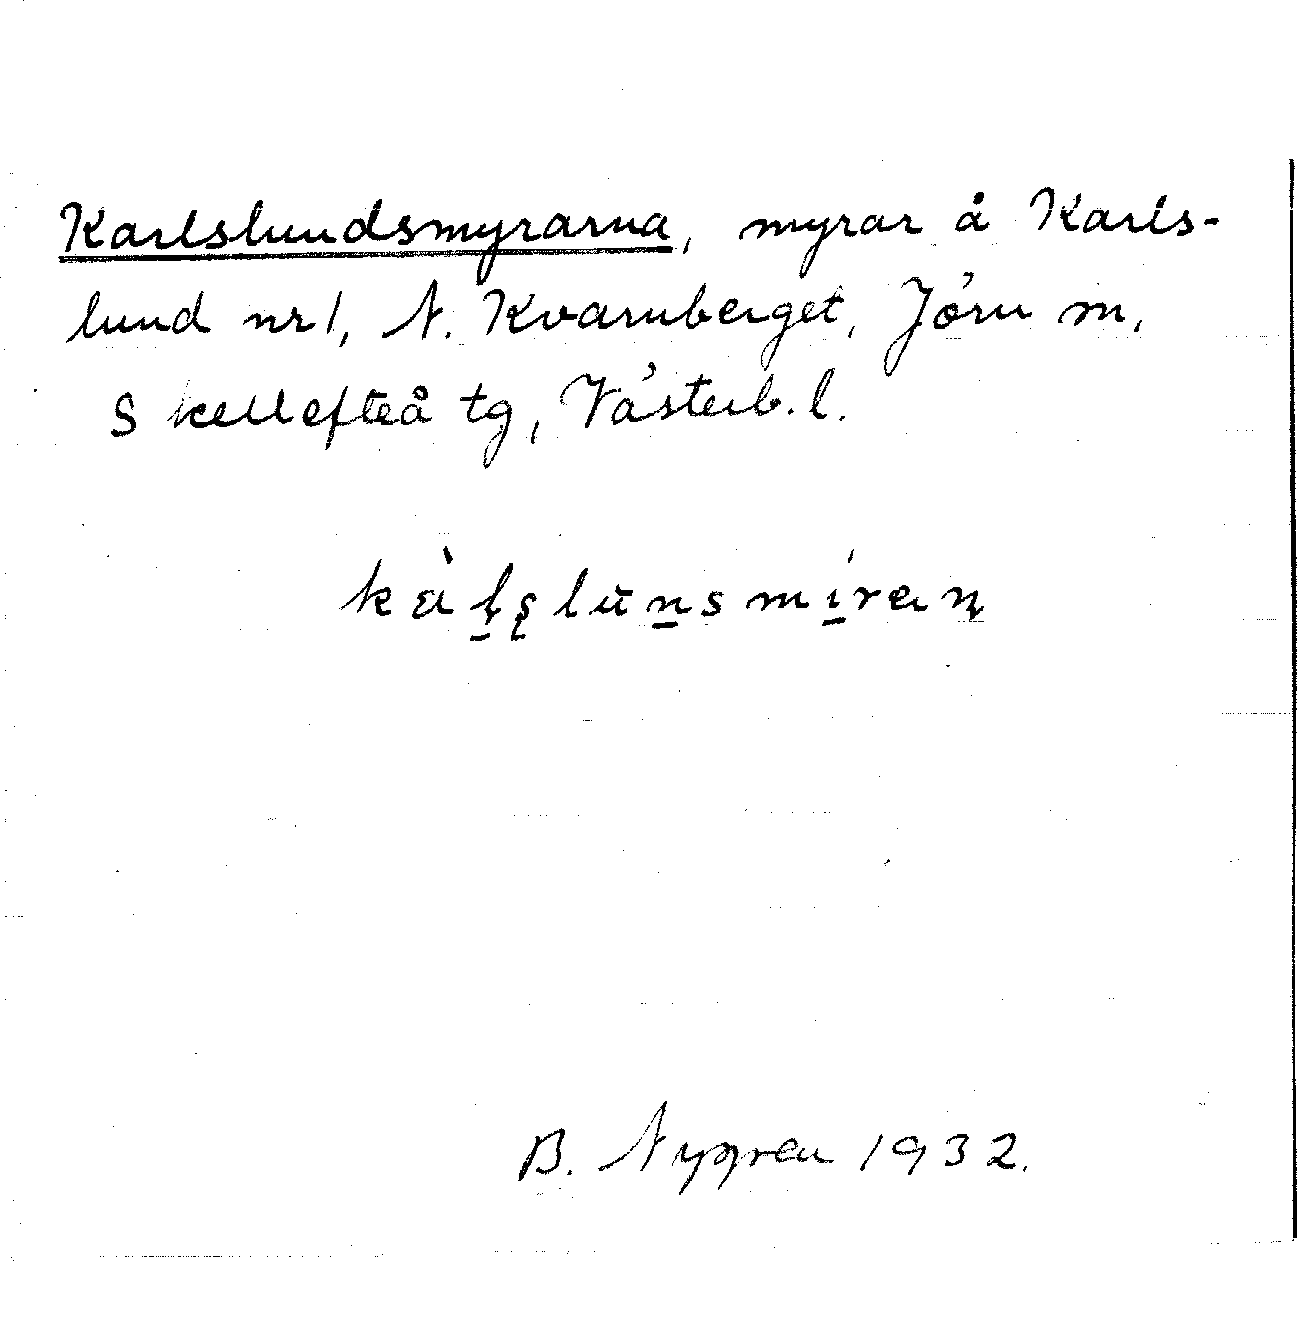 Karlslundsmyrarna, myrar å Karls-
lund nr 1, N. Kvarnberget, Jörn m,
Skellefteå tg, Västerb. l.
B. Nygren 1932.